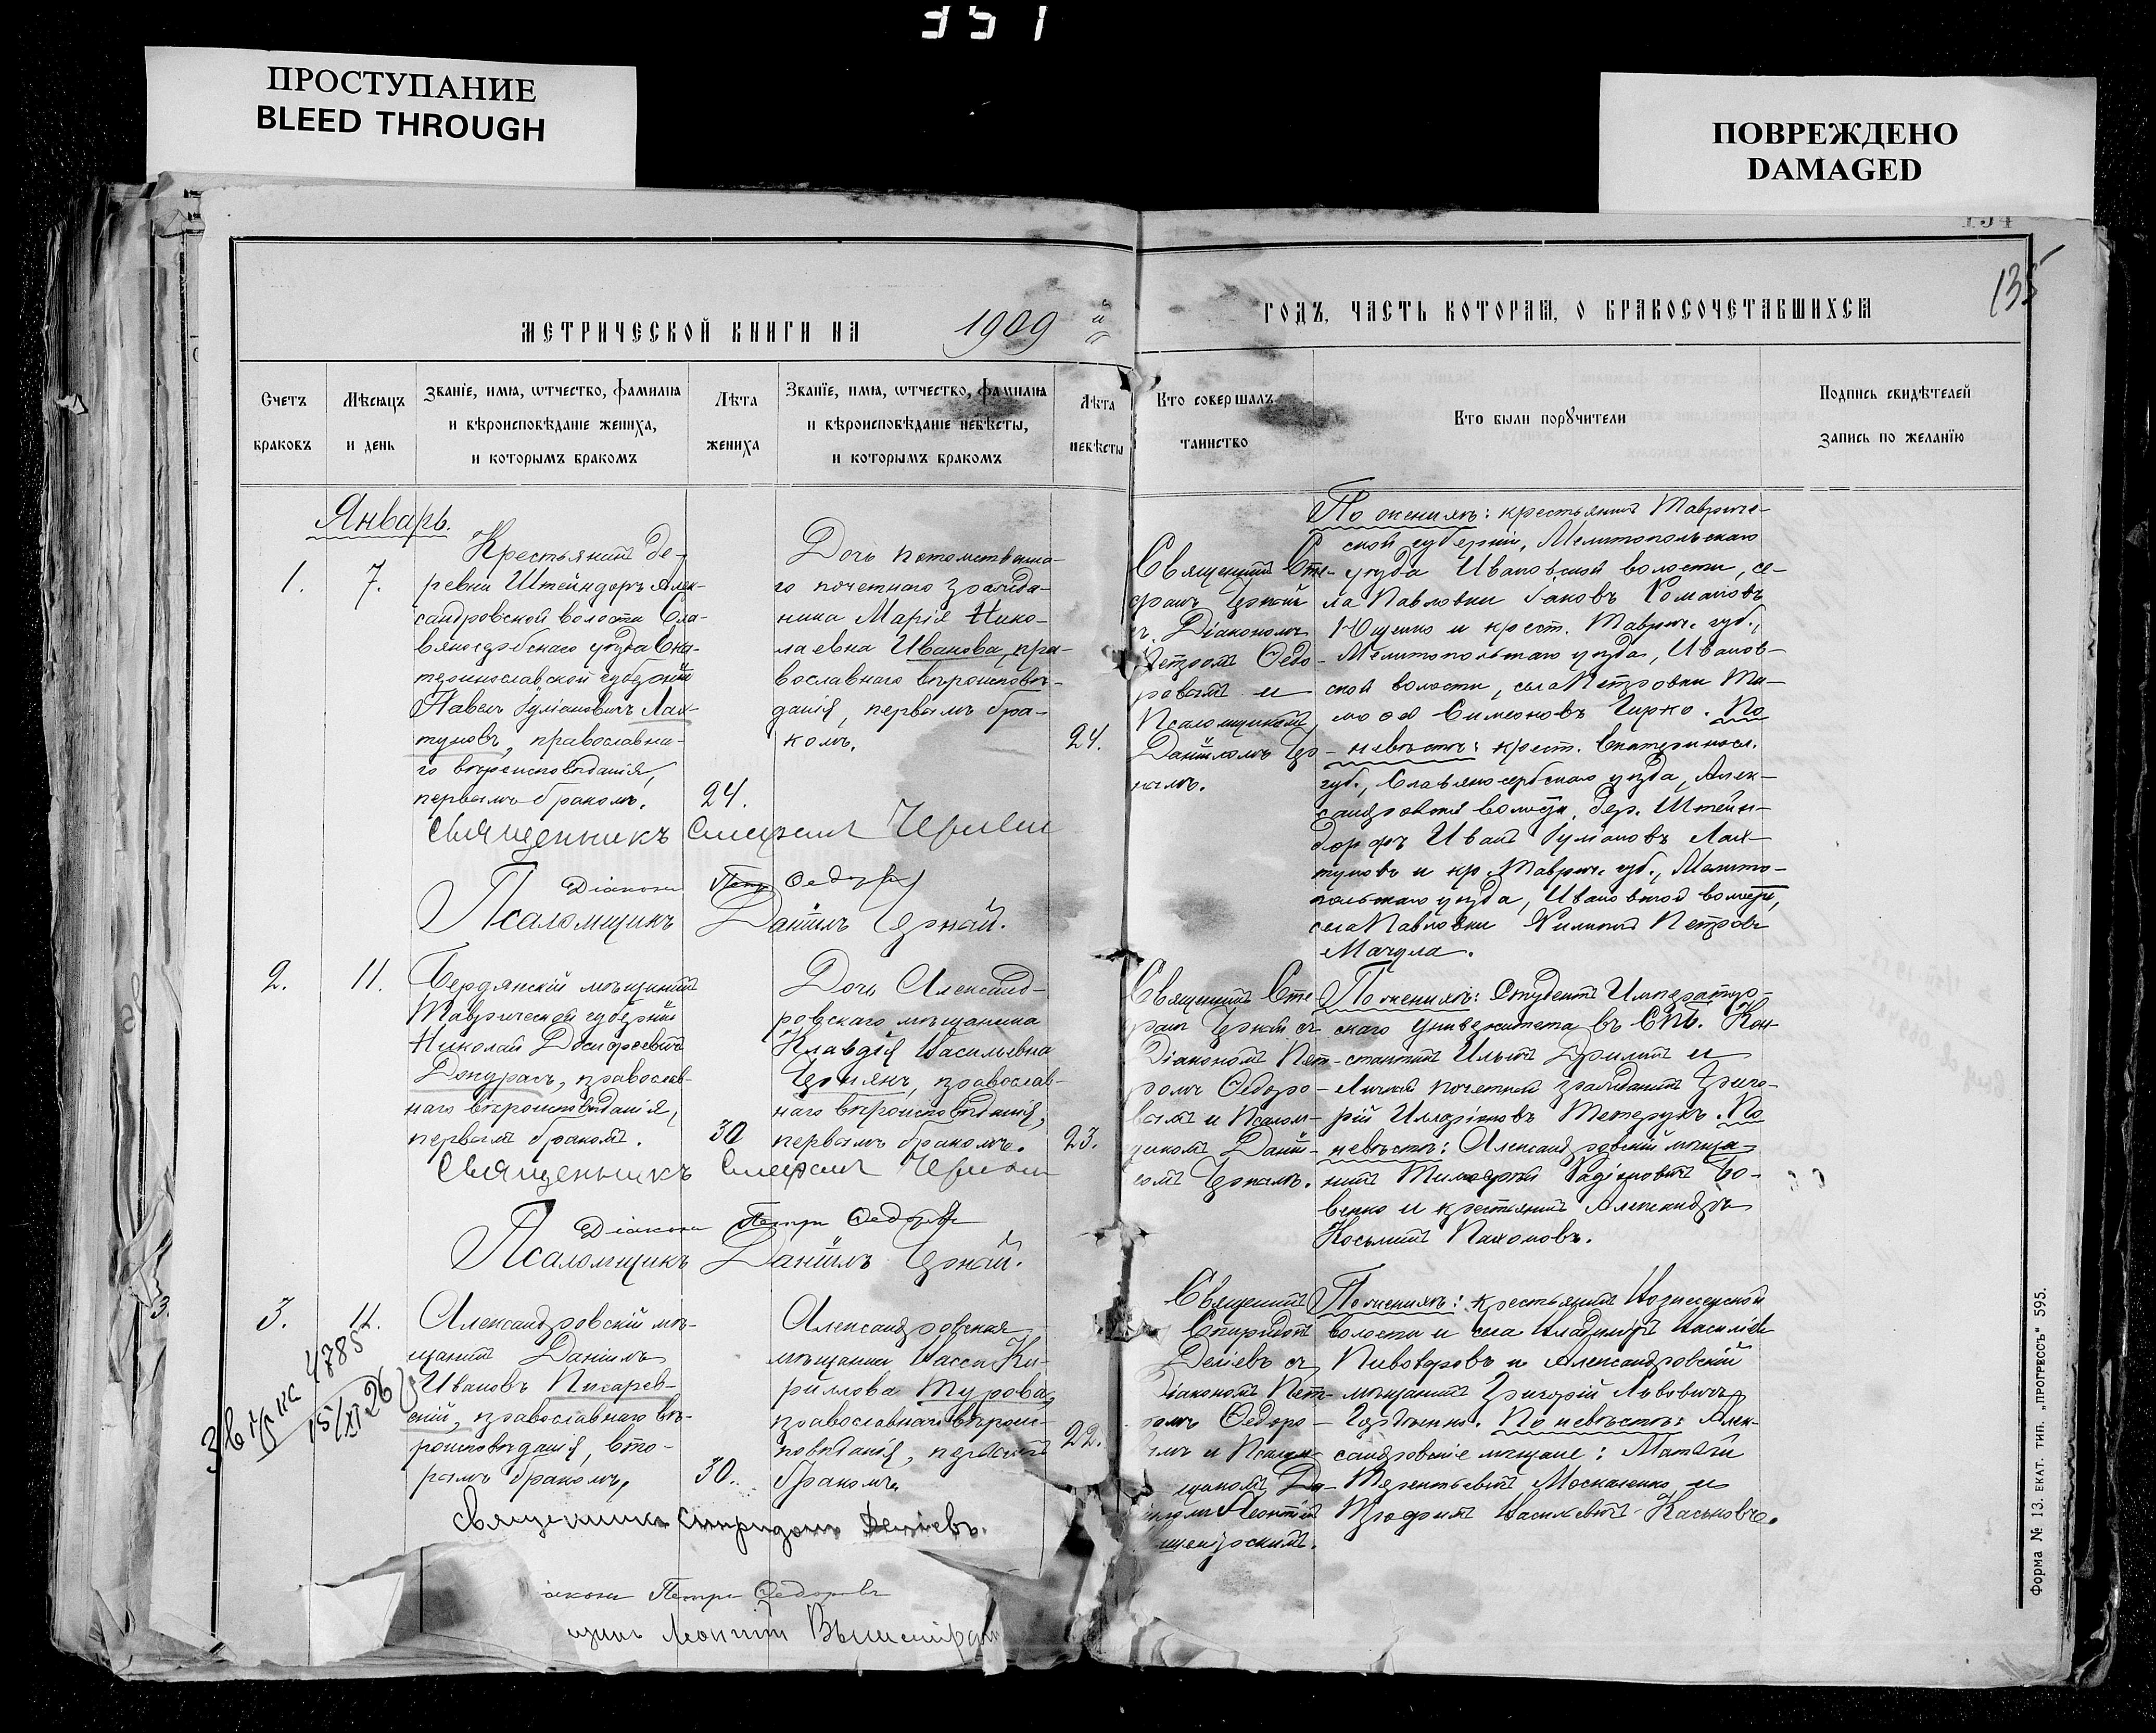 351
ПРОСТУПАНИЕ
BLEED THROUGH
ПОВРЕЖДЕНО
DAMAGED
135
МЕТРИЧЕСКОЙ КНИГИ НА 1909 й
ГОДЪ, ЧАСТЬ ВТОРАЯ, О БРАКОСОЧЕТАВШИХСЯ
Счетъ
браковъ
Мѣсяцъ
и день
Званіе, имя, ѡтчество, фамилія
и вѣроисповѣданіе жениха,
и которымъ бракомъ
Лѣта
жениха
Званїе, имя, ѡтчество, фамилія
и вѣроисповѣданіе невѣсты,
и которымъ бракомъ
Лѣта
невѣсты
Кто совершалъ
таинство
Кто были порꙋчители
Подпись свидѣтелей
запись по желанїю
Январь.
1.
7.
Крестьянинъ де-
ревни Штейндорфъ Алек-
сандровской волости Сла-
вяносербскаго уѣзда Ека-
теринославской губерніи
Павелъ Іуліановичъ Лак-
туновъ, православна-
го вѣроисповѣданія,
первымъ бракомъ.
24.
Дочь потомственна-
го почетнаго гражда-
нина Марія Нико-
лаевна Иванова, пра-
вославнаго вѣроисповѣ-
данія, первымъ бра-
комъ.
24.
Священникъ Сте-
фанъ Черный
съ Діакономъ
Петромъ Ѳедо-
ровымъ и
Псаломщикомъ
Даніиломъ Чер-
нымъ.
По женихѣ: крестьянинъ Тавриче-
ской губерніи, Мелитопольскаго
уѣзда Ивановской волости, се-
ла Павловки Іаковъ Романовъ
Ющенко и крест. Таврич. губ.,
Мелитопольскаго уѣзда, Иванов-
ской волости, села Петровки Ти-
моѳей Симеоновъ Чирко. По
невѣстѣ: крест. Екатериносл.
губ., Славяносербскаго уѣзда, Алек-
сандровской волости, дер. Штейн-
дорфъ Иванъ Іуліановъ Лак-
туновъ и кр. Таврич. губ., Мелито-
польскаго уѣзда, Ивановской волости,
села Павловки Филиппъ Петровъ
Мачула.
Священникъ Стефанъ Черный
Діаконъ Петръ Ѳедоровъ
Псаломщикъ Даніилъ Черный.
2.
11.
Бердянскій мѣщанинъ
Таврической губерніи
Николай Досиѳеевичъ
Докурасъ, православ-
наго вѣроисповѣданія,
первымъ бракомъ.
30
Дочь Александ-
ровскаго мѣщанина
Клавдія Васильевна
православ-
наго вѣроисповѣданія,
первымъ бракомъ.
23.
Священникъ Сте-
фанъ Черный съ
Діакономъ Пет-
ромъ Ѳедоро-
вымъ и Псалом-
щикомъ Дані-
иломъ Чернымъ.
По женихѣ: Студентъ Император-
скаго Университета въ СПб. Кон-
стантинъ Ильичъ и
Личный почетный гражданинъ Григо-
рій Иларіоновъ Тетерукъ. По
невѣстѣ: Александровскій мѣща-
нинъ Тимоѳей Родіоновичъ Бо-
венко и крестьянинъ Александръ
Косьмичъ Пахомовъ.
Священникъ Стефанъ Черный
Діаконъ Петръ Ѳедоровъ
Псаломщикъ Даніилъ Черный.
3.
3.
11.
4785
15/XI 26
Александровскій мѣ-
щанинъ Даніилъ
Ивановъ Писарев-
скій, православнаго вѣ-
роисповѣданія, вто-
рымъ бракомъ,
30.
Александровская
мѣщанка Васса Ки-
риллова Турова,
православнаго вѣроис-
повѣданія, первымъ
бракомъ.
22.
Священникъ
Спиридонъ
Деліевъ съ
Діакономъ Пет-
ромъ Ѳедоро-
вымъ и Псалом-
щикомъ Леонтіемъ
По женихѣ: крестьянинъ Вознесенской
волости и села Владиміръ Васильевъ
Пивоваровъ и Александровскій
мѣщанинъ Григорій Львовичъ
Гордѣенко. По невѣстѣ: Алек-
сандровскіе мѣщане: Матвѣй
Терентьевичъ Москаленко и
Трофимъ Васильевичъ Касьновъ.
Священникъ Спиридонъ Деліевъ.
іаконъ Петръ Ѳедоровъ
щикъ Леонтій
Форма № 13. ЕКАТ. ТИП. „ПРОГРЕССЪ" 595.